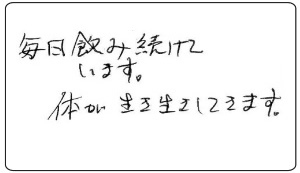 毎日飲み続けて
います。
体が生き生きしてきます。